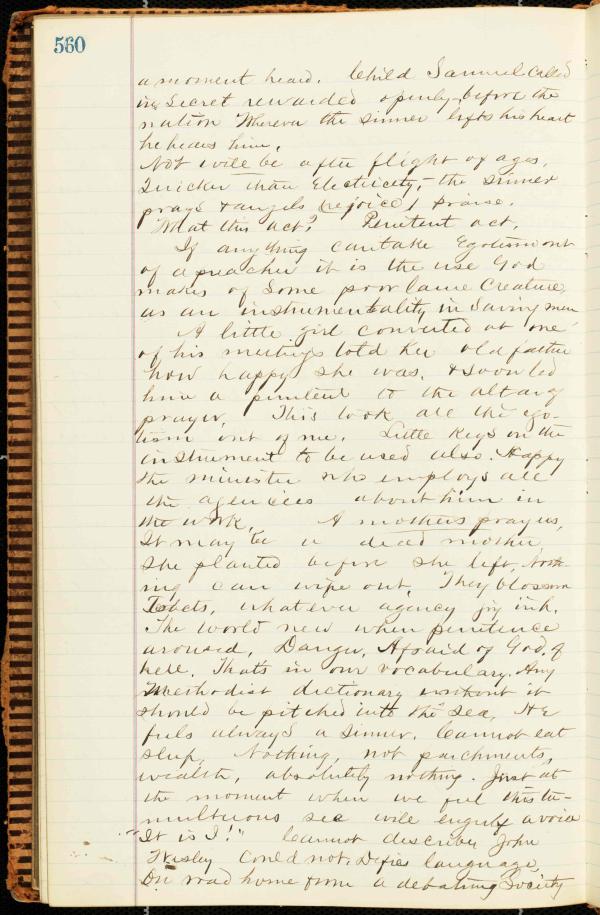 560
a moment heard. Child Samuel called
in secret rewarded openly before the
nation Wherever the sinner lifts his heart
he hears him.
Not will be after flight of ages.
Quicker than Electricity, the sinner
prays & angels (rejoice) praise.
What this act? Penitent act.
If anything can take Egotism out
of a preacher it is the use God
makes of some poor lame creature
as an instrumentality in saving men
A little girl converted at one
of his meetings told her old father
how happy she was, & soon led
him a penitent to the altar of
prayer. This took all the ego-
tism out of me. Little keys on the
instrument to be used also. Happy
the minister who employs all
the agencies about him in
the work. A mothers prayers,
It may be a dead mother
she planted before she left, Noth-
ing can wipe out. They blossom
whatever agency
The world new when penitence
aroused, Danger, Afraid of God, of
hell. Thats in our vocabulary. Any
Methodist dictionary without it
should be pitched into the sea. He
feels always a sinner. Cannot eat
sleep. Nothing, not parchments,
wealth, absolutely nothing. Just at
the moment when we feel this tu-
multuous sea will engulf a voice
"It is I!" Cannot describe John
Wesley could not. Defies language.
On road home from a debating Society